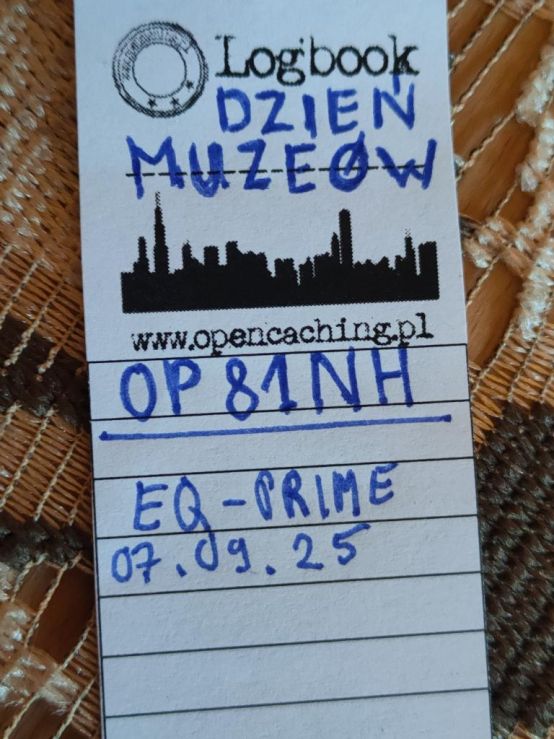 Logbook
DZIEŃ
MUZEÓW
www.opencaching.pl
OP 81NH
EQ-PRIME
07.09.25